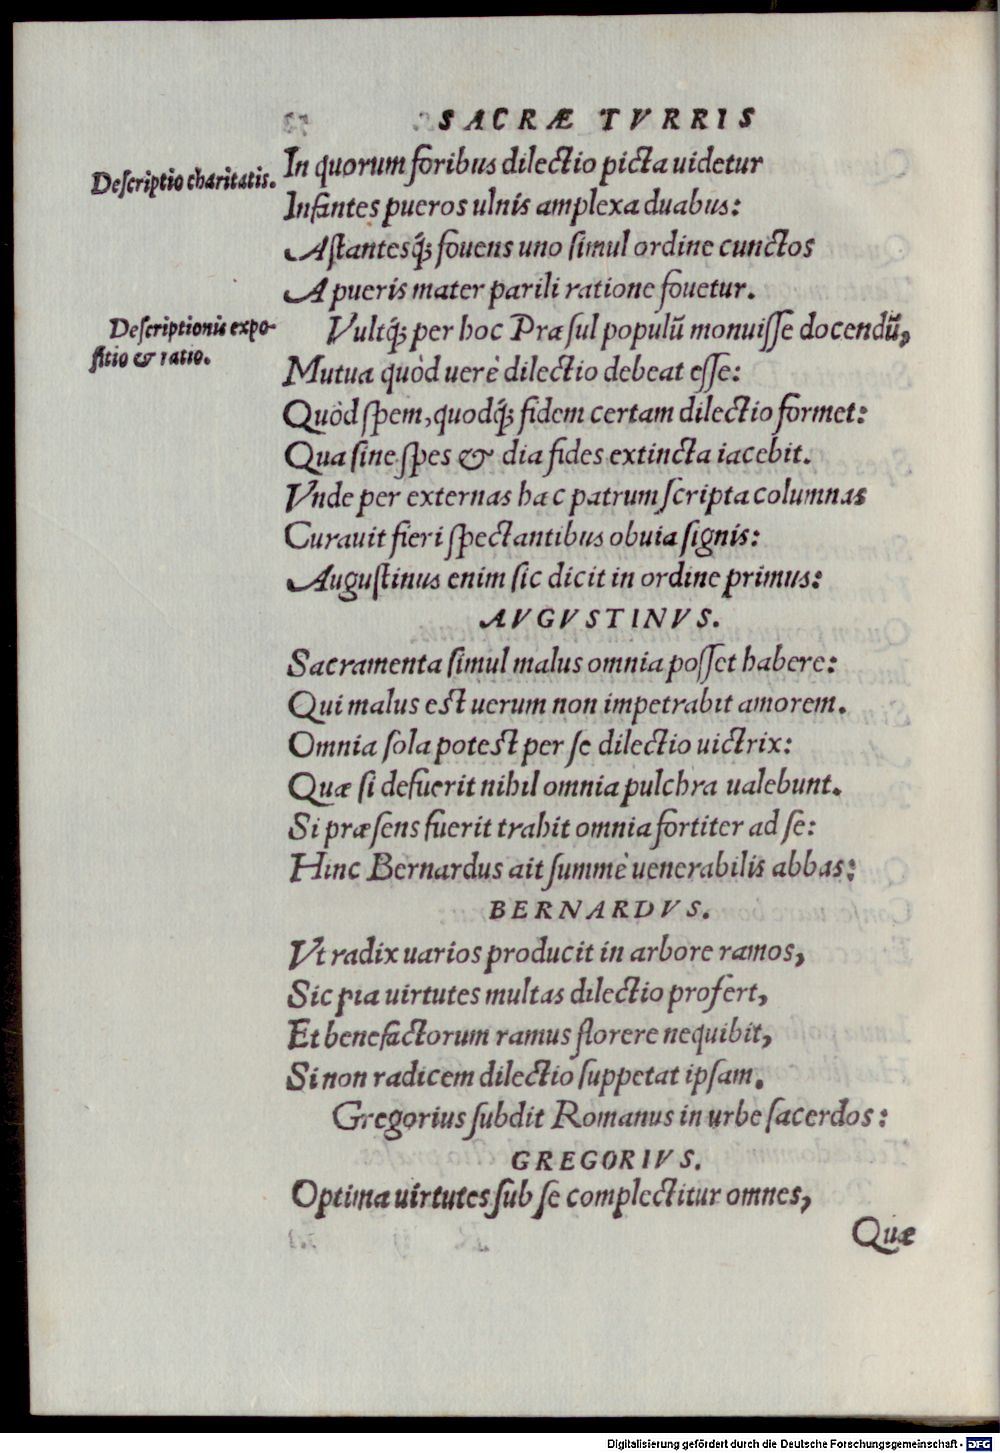 SACRÆ TVRRIS
Deſcriptio charitatis.
In quorum foribus dilectio picta uidetur
Infantes pueros ulnis amplexa duabus:
Aſtantesq́ʒ fouens uno ſimul ordine cunctos
A pueris mater parili ratione fouetur.
Deſcriptionis expo-
ſitio & ratio.
Vultq́ʒ per hoc Præſul populũ monuiſſe docendũ,
Mutua quòd uerè dilectio debeat eſſe:
Quòd ſpem, quodq́ʒ fidem certam dilectio formet:
Qua ſine ſpes & dia fides extincta iacebit.
Vnde per externas hac patrum ſcripta columnas
Curauit fieri ſpectantibus obuia ſignis:
Auguſtinus enim ſic dicit in ordine primus:
AVGVSTINVS.
Sacramenta ſimul malus omnia poſſet habere:
Qui malus est uerum non impetrabit amorem.
Omnia ſola potest per ſe dilectio uictrix:
Quæ ſi defuerit nihil omnia pulchra ualebunt.
Si præſens fuerit trahit omnia fortiter ad ſe:
Hinc Bernardus ait ſummè uenerabilis abbas:
BERNARDVS.
Vt radix uarios producit in arbore ramos,
Sic pia uirtutes multas dilectio profert,
Et benefactorum ramus florere nequibit,
Si non radicem dilectio ſuppetat ipſam.
Gregorius ſubdit Romanus in urbe ſacerdos:
GREGORIVS.
Optima uirtutes ſub ſe complectitur omnes,
Quæ
Digitalisierung gefördert durch die Deutsche Forschungsgemeinschaft - DFG